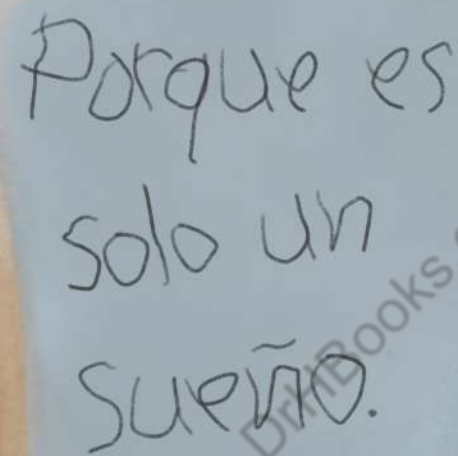 Porque es
solo un
sueño.
DrHBooks.